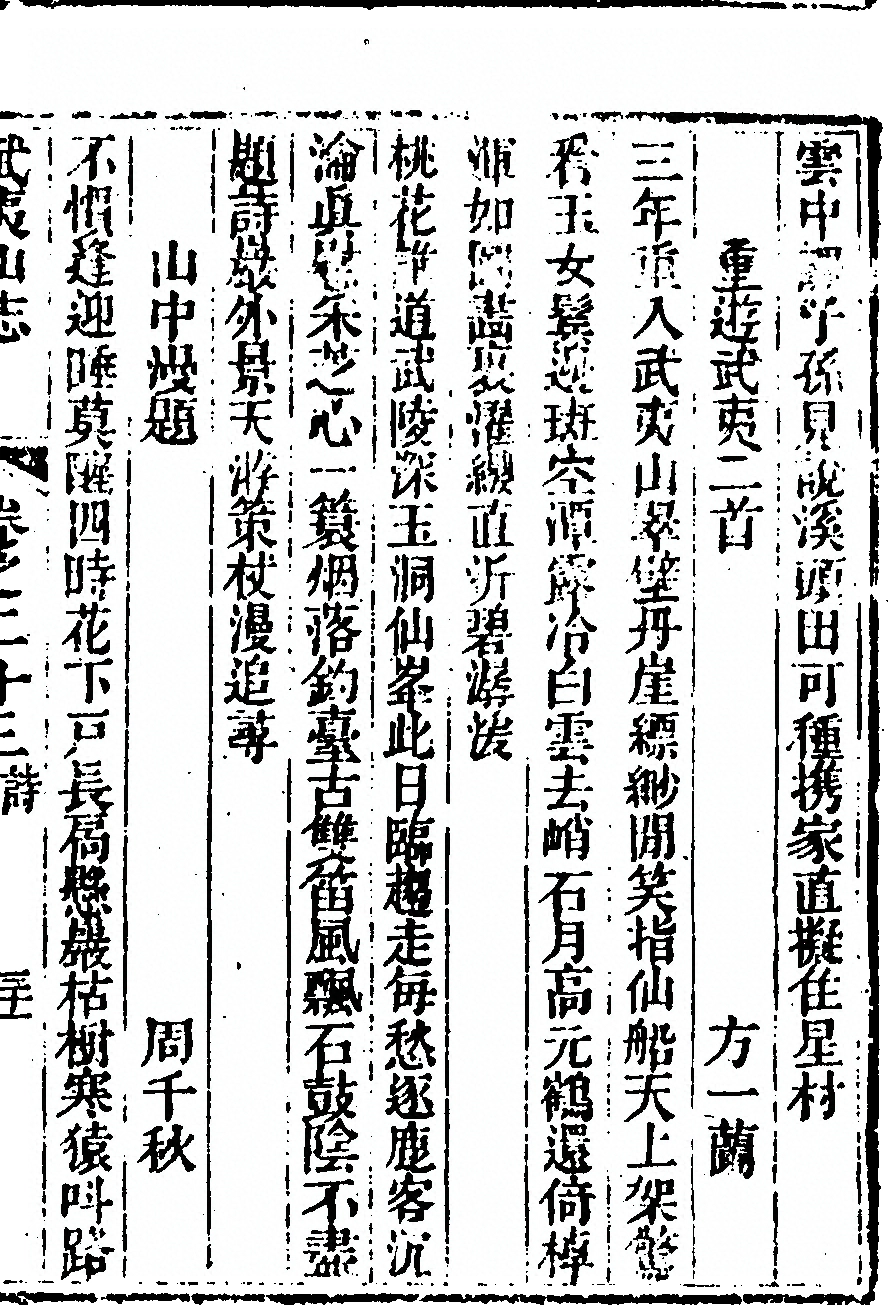 雲中課子孫見說溪頭田可種携家直擬住星村
重遊武夷二首 方一蘭
三年重入武夷山翠壁丹崖縹緲閒笑指仙船天上架驚
看玉女鬓邊斑空潭露冷白雲去峭石月高元鶴還倚棹
渾如圖畫裏濯纓直泝碧潺湲
桃花誰道武陵深玉洞仙峯此日臨趨走每愁逐鹿客沉
淪真慰采芝心一簑烟落釣臺古雙笛風飄石鼓陰不盡
題詩巖外景天游策杖漫追尋
山中漫題 周千秋
不慣逢迎睡莫醒四時花下戶長扃懸巖枯樹寒猿叫路
武夷山志 卷之二十三 詩